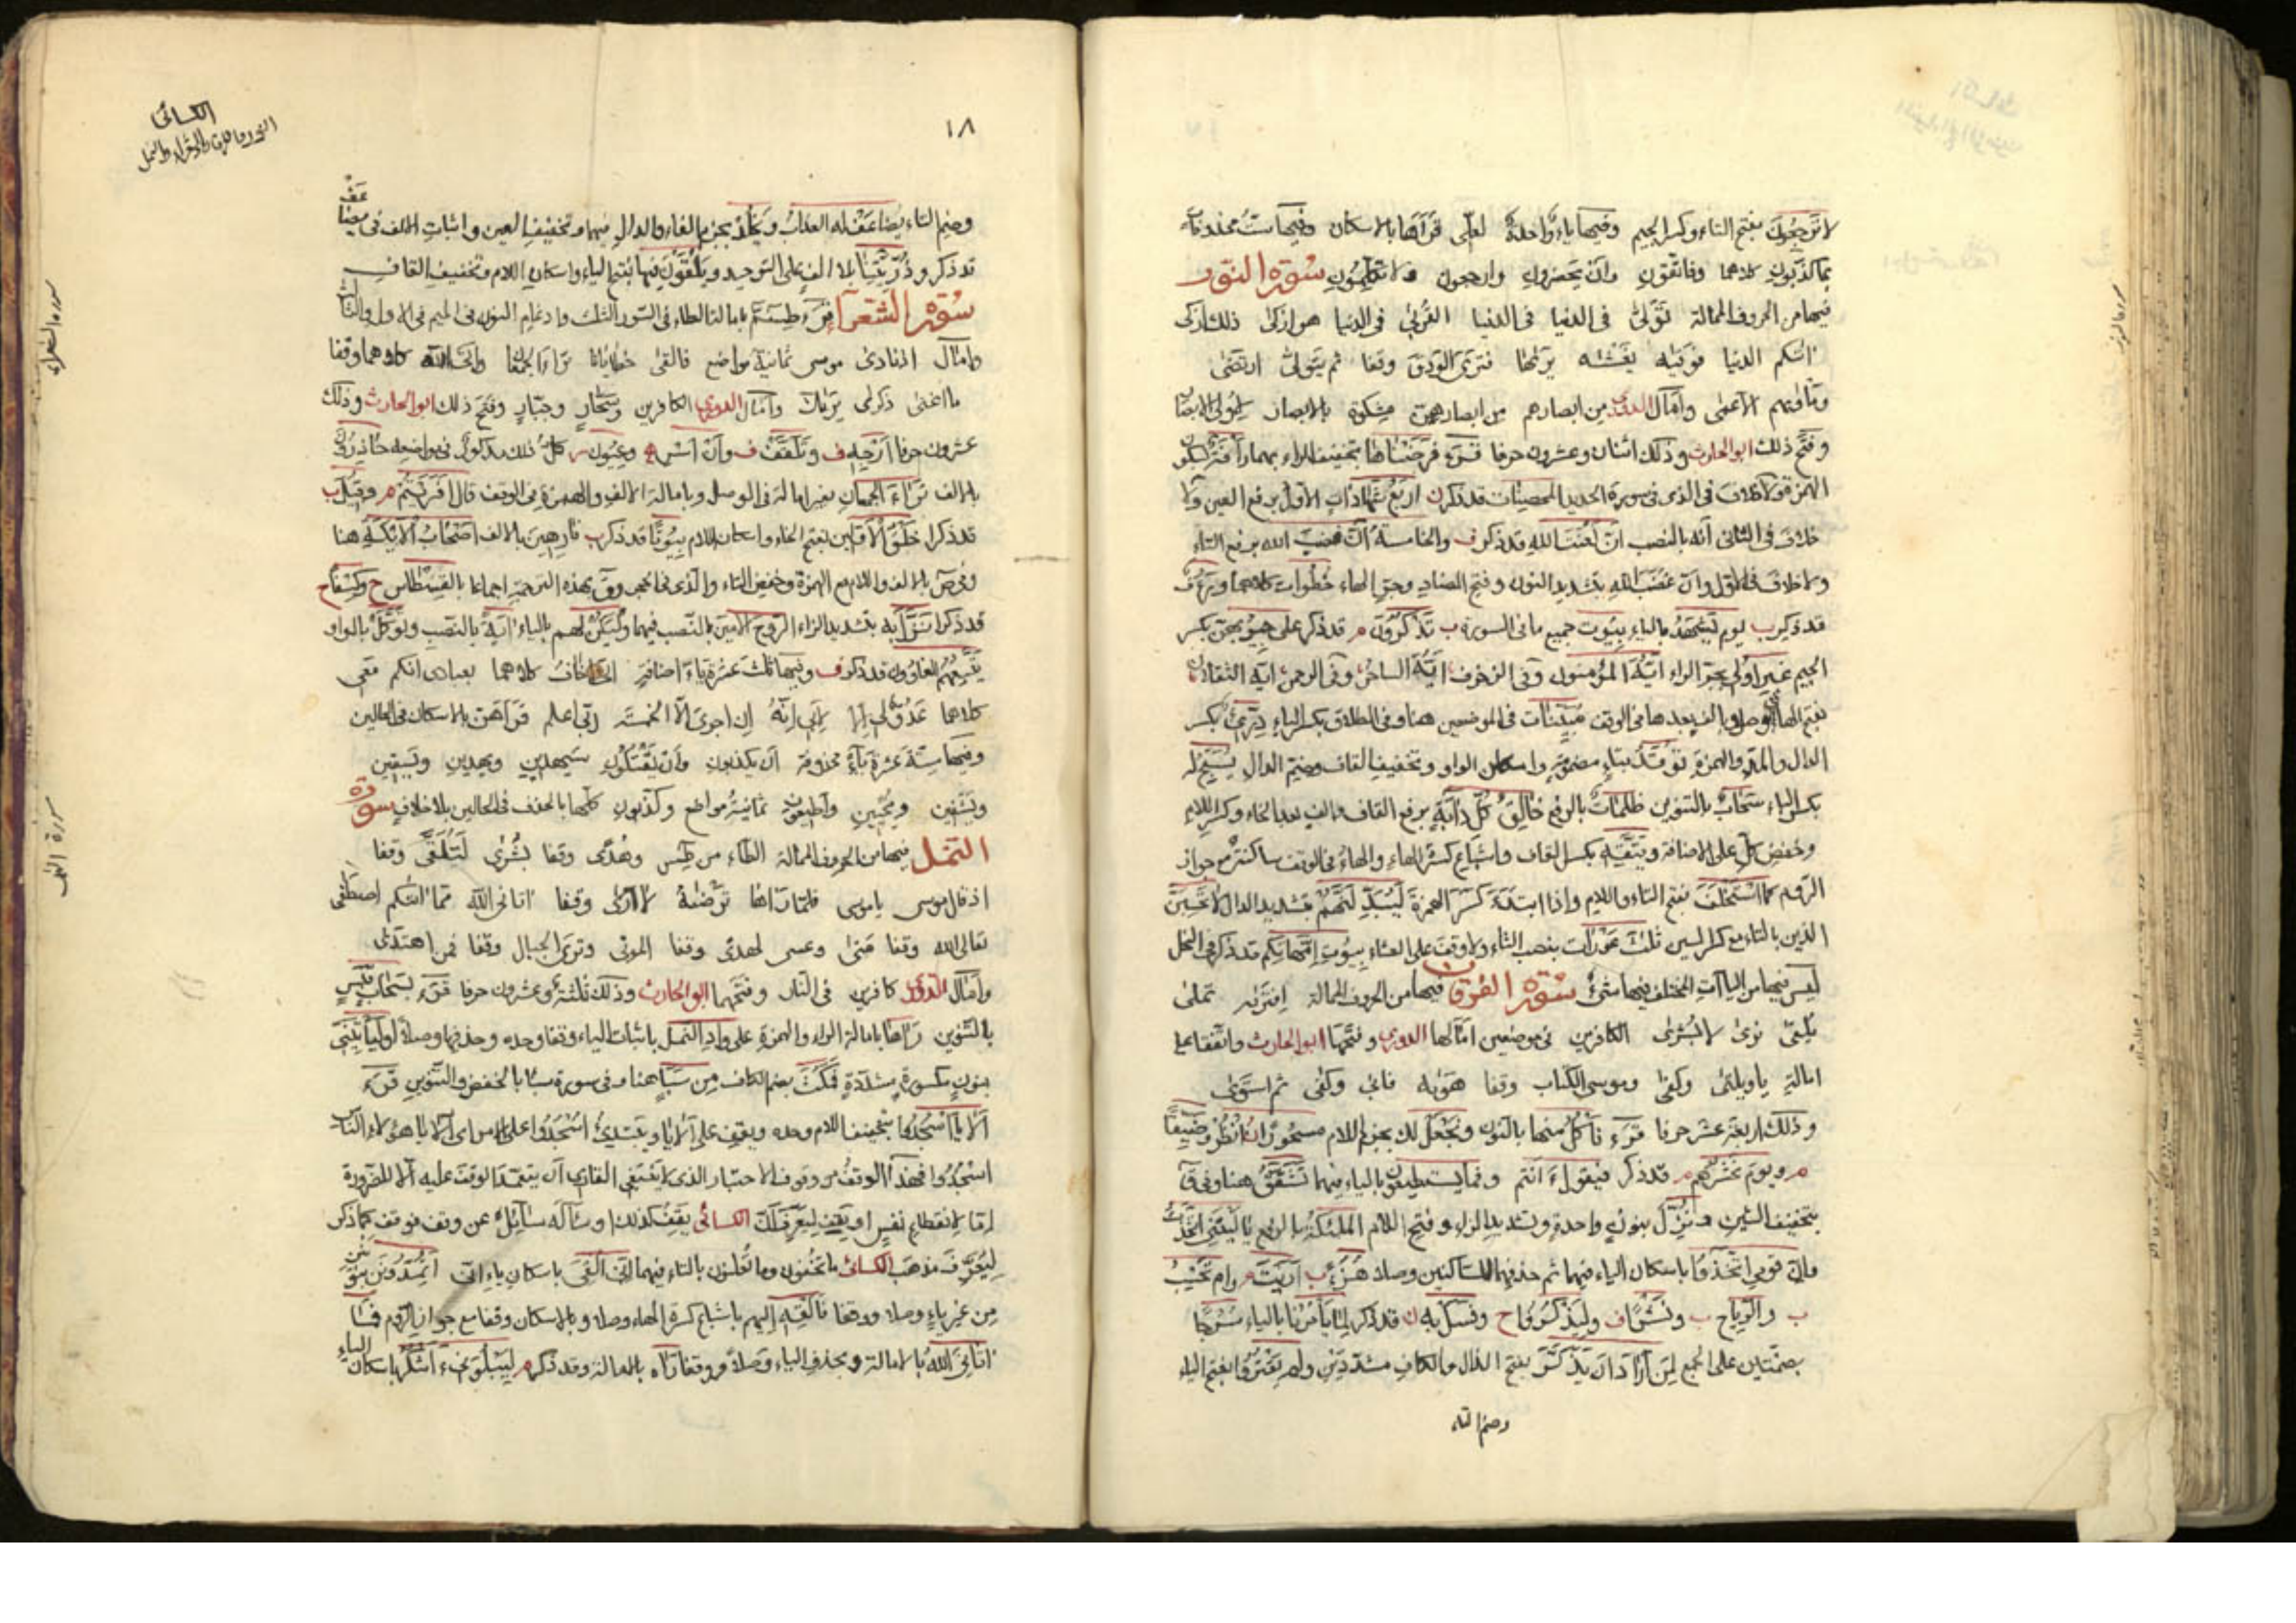 لا ترجعون بفتح التاء وكسر الجيم وفيها ياء واحدة لعلى قرأها بالاسكان وفيها ست محذوفات
بما كذبون كلاهما وفاتقون وان يحضرون وارجعون ولا تكلمون سورة النور
فيها من الحروف الممالة تولى فى الدنيا فى الدنيا القربى فى الدنيا هو ازكى ذلك ازكى
اتيكم الدنيا فوفيه يغشيه يريها فترى الودق وقفا ثم يتولى ارتضى
ومأويهم الاعمى وامال الدورى من ابصارهم من ابصارهن مشكوة بالابصار لاولى الابصار
وفتح ذلك ابو الحارث وذلك اثنان وعشرون حرفا قرء فرضناها بتخفيف الراء بهما رأفة بسكون
الهمزة ولا خلاف فى الذى فى سورة الحديد المحصنات قد ذكر ن اربع شهادات الاول برفع العين ولا
خلاف فى الثانى انه بالنصب ان لعنت الله قد ذكر ف والخامسة ان غضب الله برفع التاء
ولا خلاف فى الاول وان غضب الله بتشديد النون وفتح الضاد وجر الهاء خطوات كلاهما ورؤف
قد ذكر ب يوم يشهد بالياء بيوت جميع ما فى السورة ب تذكرون م قد ذكر على جيوبهن بكسر
الجيم غير اولى بجر الراء ايه المؤمنون وفى الزخرف ايه الساحر وفى الرحمن ايه الثقلان
بفتح الهاء فى الوصل وبالف بعدها فى الوقف مبينات فى الموضعين هنا وفى الطلاق بكسر الياء درئ بكسر
الدال والمد والهمزة توقد بتاء مضمومة واسكان الواو وتخفيف القاف وضم الدال يسبح له
بكسر الباء سحاب بالتنوين ظلمات بالرفع خالق كل دابة برفع القاف والف بعد الخاء وكسر اللام
وخفض كل على الاضافة ويتقه بكسر القاف واشباع كسرة الهاء والهاء فى الوقف ساكنة مع جواز
الروم كما استخلف بفتح التاء واللام واذا ابتدء كسر الهمزة ليبدلنهم بتشديد الدال لا تحسبن
الذين بالتاء مع كسر السين ثلث عورات بنصب الثاء ولا وقف على العشاء بيوت امهاتكم قد ذكر فى النحل
ليس فيها من الياآت المختلف فيها شئ سورة الفرقان فيها من الحروف الممالة افتريه تملى
يلقى نرى لا بشرى الكافرين فى موضعين امالها الدورى وفتحها ابو الحارث واتفقا على
امالة ياويلتى وكفى وموسى الكتاب وقفا هويه فابى وكفى ثم استوى
وذلك اربعة عشر حرفا قرء نأكل منها بالنون ونجعل لك بجزم اللام مسحورا انظر وضيقا
م ويوم نحشرهم م قد ذكر فيقول ءانتم وفما يستطيعون بالياء فيهما تشقق هنا وفى ق
بتخفيف الشين ونزل بنون واحدة وتشديد الزاى وفتح اللام الملئكة بالرفع ياليتنى اتخذت
وان قومى اتخذوا باسكان الياء فيهما ثم حذفهما للساكنين وصلا هزؤا ب اريت م وام تحسب
ب والرياح ب ونشرا ف وليذكروا ح وفسئل به ن قد ذكر لما يأمرنا بالياء سرجا
بضمتين على الجمع لمن اراد ان يذكر بفتح الذال والكاف مشددين ولم يقتروا بفتح الياء
وضم التاء
الكسائى
النور والفرقان والشعراء والنمل
١٨
وضم التاء يضاعف له العذاب ويخلد بجزم الفاء والدال فيهما وتخفيف العين واثبات الالف فى يضاعف
قد ذكر وذريتنا بلا الف على التوحيد ويلقون فيها بفتح الياء واسكان اللام وتخفيف القاف
سورة الشعرآ قرء طسم بامالة الطاء فى السور الثلث وادغام النون فى الميم فى الاول والثالث
وامال المنادى موسى ثمانية مواضع فالقى خطايانا تراءا الجمعان واتى الله كلاهما وقفا
ما اغنى ذكرى يريك وامال الدورى الكافرين وسحار وجبار وفتح ذلك ابو الحارث وذلك
عشرون حرفا ارجه ف وتلقف ف وان اسر ه وعيون ر كل ذلك مذكور فى مواضعه حاذرون
بالالف تراء الجمعان بغير امالة فى الوصل وبامالة الالف والهمزة فى الوقف قال افريتم م وقيل ب
قد ذكرا خلق الاولين بفتح الخاء واسكان اللام بيوتا قد ذكر ب فارهين بالالف اصحاب الايكة هنا
وفى ص بالالف واللام مع الهمزة وخفض التاء والذى فى الحجر وق بهذه الترجمة اجماعا بالقسطاس ح وكسفا ح
قد ذكرا نزل به بتشديد الزاء الروح الامين بالنصب فيهما وليكن لهم بالياء اية بالنصب وتوكل بالواو
يتبعهم الغاوون قد ذكر ف وفيها ثلث عشرة ياء اضافة انى اخاف كلاهما بعبادى انكم معى
كلاهما عدو لى الا لابى انه ان اجرى الا الخمسة ربى اعلم قرأهن بالاسكان فى الحالين
وفيها ستة عشرة ياء محذوفة ان يكذبون وان يقتلون سيهدين ويهدين ويسقين
ويشفين ويحيين واطيعون ثمانية مواضع وكذبون كلها بالحذف فى الحالين بلا خلاف سورة
النمل فيها من الحروف الممالة الطاء من طس وهدى وقفا بشرى لتلقى وقفا
اذ قال موسى ياموسى فلما رآها ترضيه لا ارى وقفا اتانى الله مما اتيكم اصطفى
تعالى الله وقفا متى وعسى لهدى وقفا الموتى وترى الجبال وقفا فمن اهتدى
وامال الدورى كافرين فى النار وفتحهما ابو الحارث وذلك ثلثة وعشرون حرفا قرء بشهاب قبس
بالتنوين رآها بامالة الراء والهمزة على واد النمل باثبات الياء وقفا وحده وحذفها وصلا اوليأتينى
بنون مكسورة مشددة فمكث بضم الكاف من سبأ هنا وفى سورة سبا بالخفض والتنوين قرء
الا يا اسجدوا بتخفيف اللام وحده ويقف على الا يا ويبتدئ اسجدوا على الامر اى الا يا هؤلاء الناس
اسجدوا فهذا الوقف من وقوف الاختبار الذى لا ينبغى القارى ان يتعمد الوقف عليه الا للضرورة
اما لانقطاع نفس او يقف ليعرف لك الكسائى يقف كذلك او سأله سائل عن وقف فوقف كما ذكر
ليعرف مذهب الكسائى ما تخفون وما تعلنون بالتاء فيهما انى القى باسكان ياء انى اتمدونن بنونين
من غير ياء وصلا ووقفا فالقه اليهم باشباع كسرة الهاء وصلا وبالاسكان وقفا مع جواز الروم فما
اتانى الله بالامالة وبحذف الياء وصلا ووقفا رآه بالامالة وقد ذكر م ليبلونى ءاشكر باسكان الياء
سورة الشعراء
سورة النمل